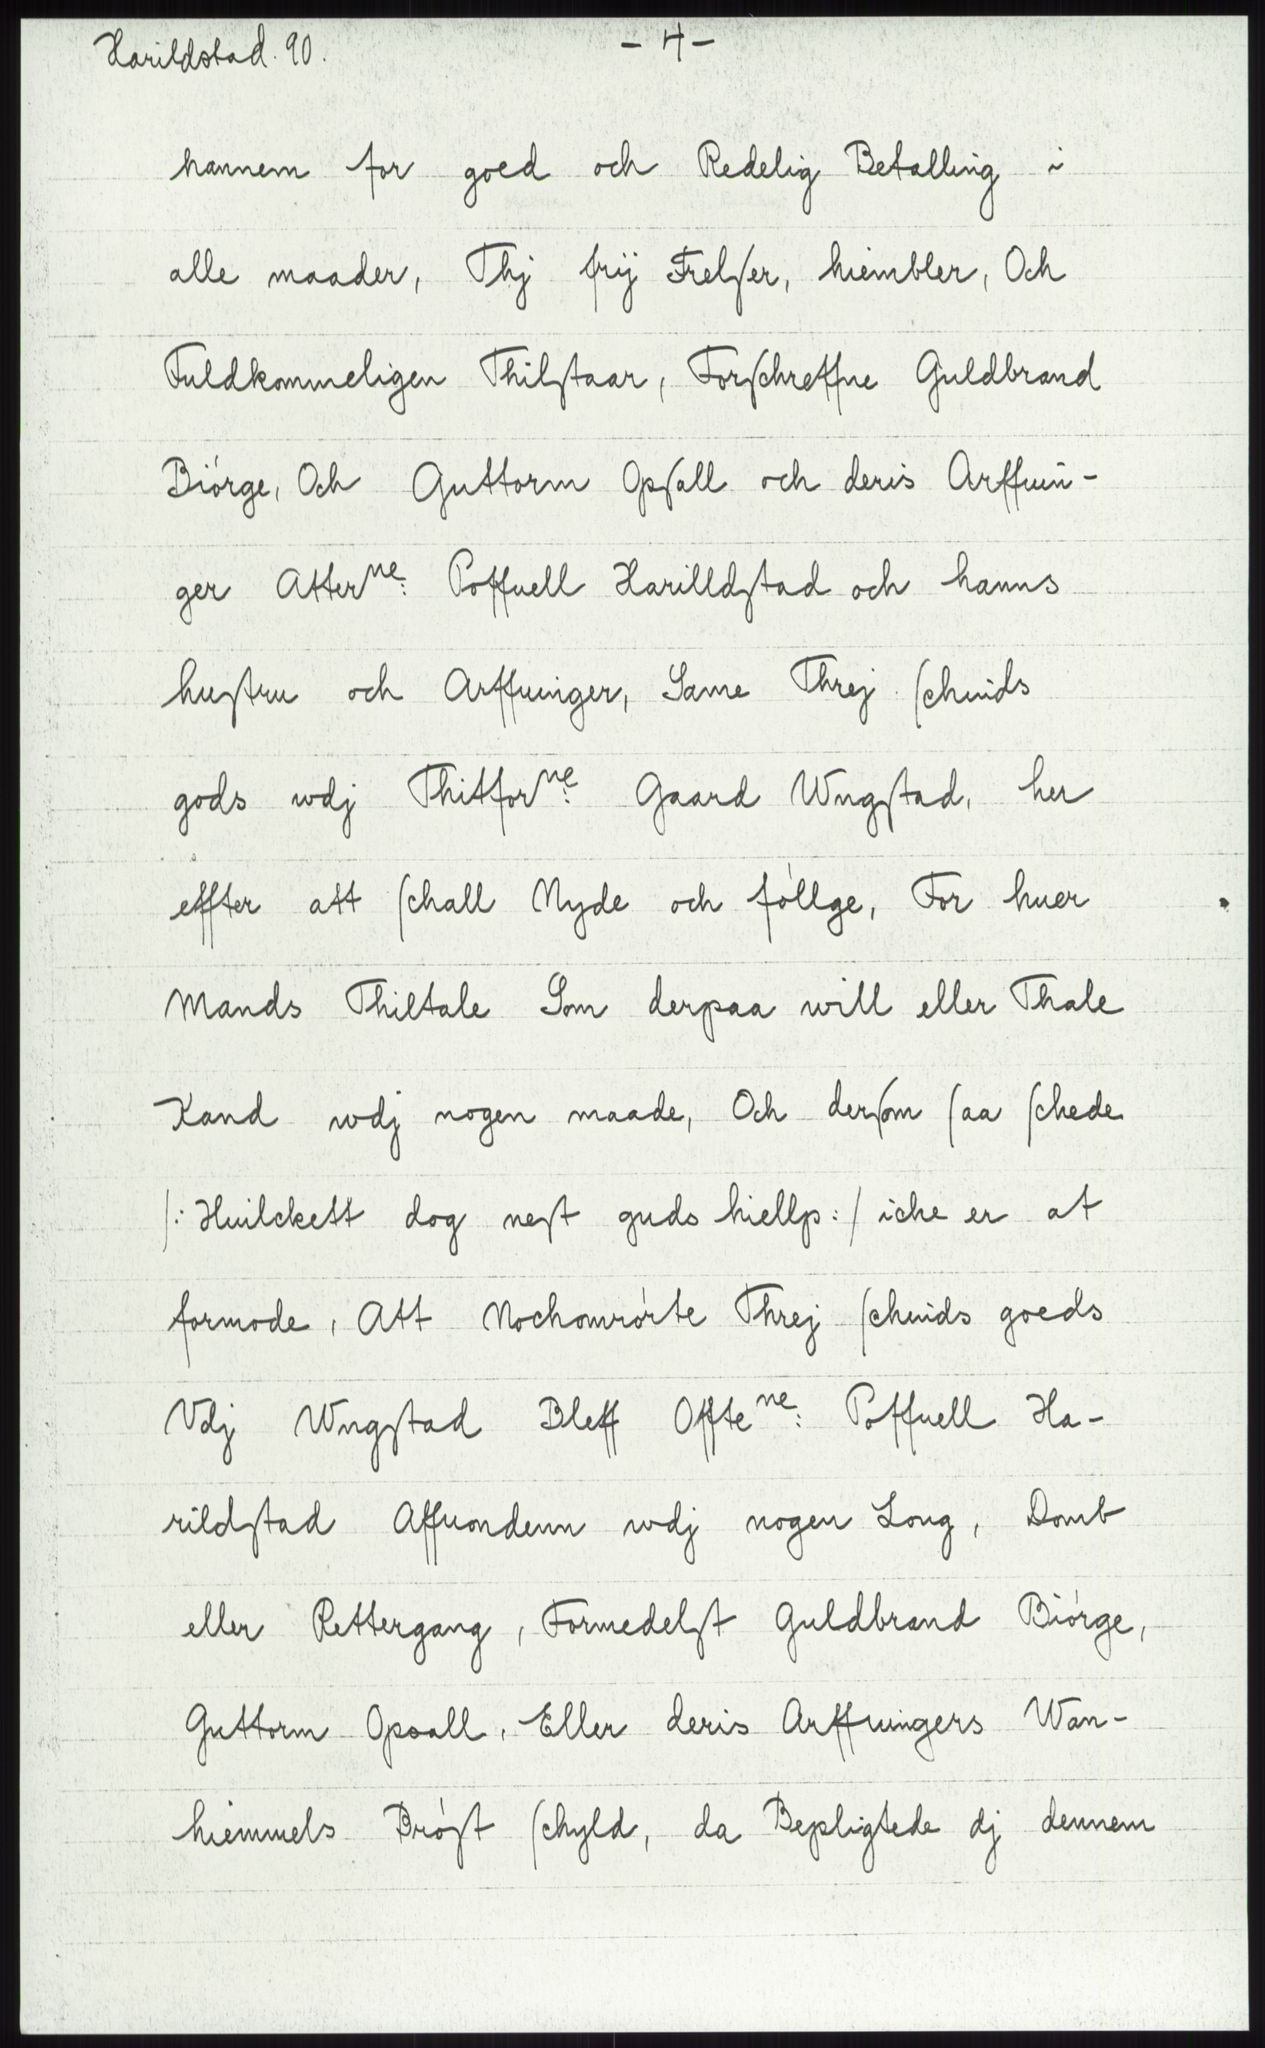 Harildstad. 90.
- 4 -
hannem for goed och Redelig Betalling i
alle maader, Thj frij Frelser, hiembler, Och
Fuldkommeligen Thilstaar, Forschreffne Guldbrand
Biórge, Och Guttorm Opsall och deris Arffuin-
ger Atterne: Poffuell Harilldstad och hanns
hustru och Arffuinger, Same Threj schinds
gods wdj Thitforne: Gaard Wngstad, her
effter att schall Nyde och fóllge, For huer
Mands Thiltale Som derpaa will eller Thale
Kand wdj nogen maade, Och dersom saa schede
/: Huilckett dog nest guds hiellp :/ iche er at
formode, Att Nochomrórte Threj schinds goeds
Vdj Wngstad Bleff Offtene: Poffuell Ha-
rildstad Affuondenn wdj nogen Loug, Domb
eller Rettergang, Formedelst Guldbrand Biórge,
Guttorm Opsall, Eller deris Arffuingers Wan-
hiemmels Bróst schyld, da Bepligtede dj dennem